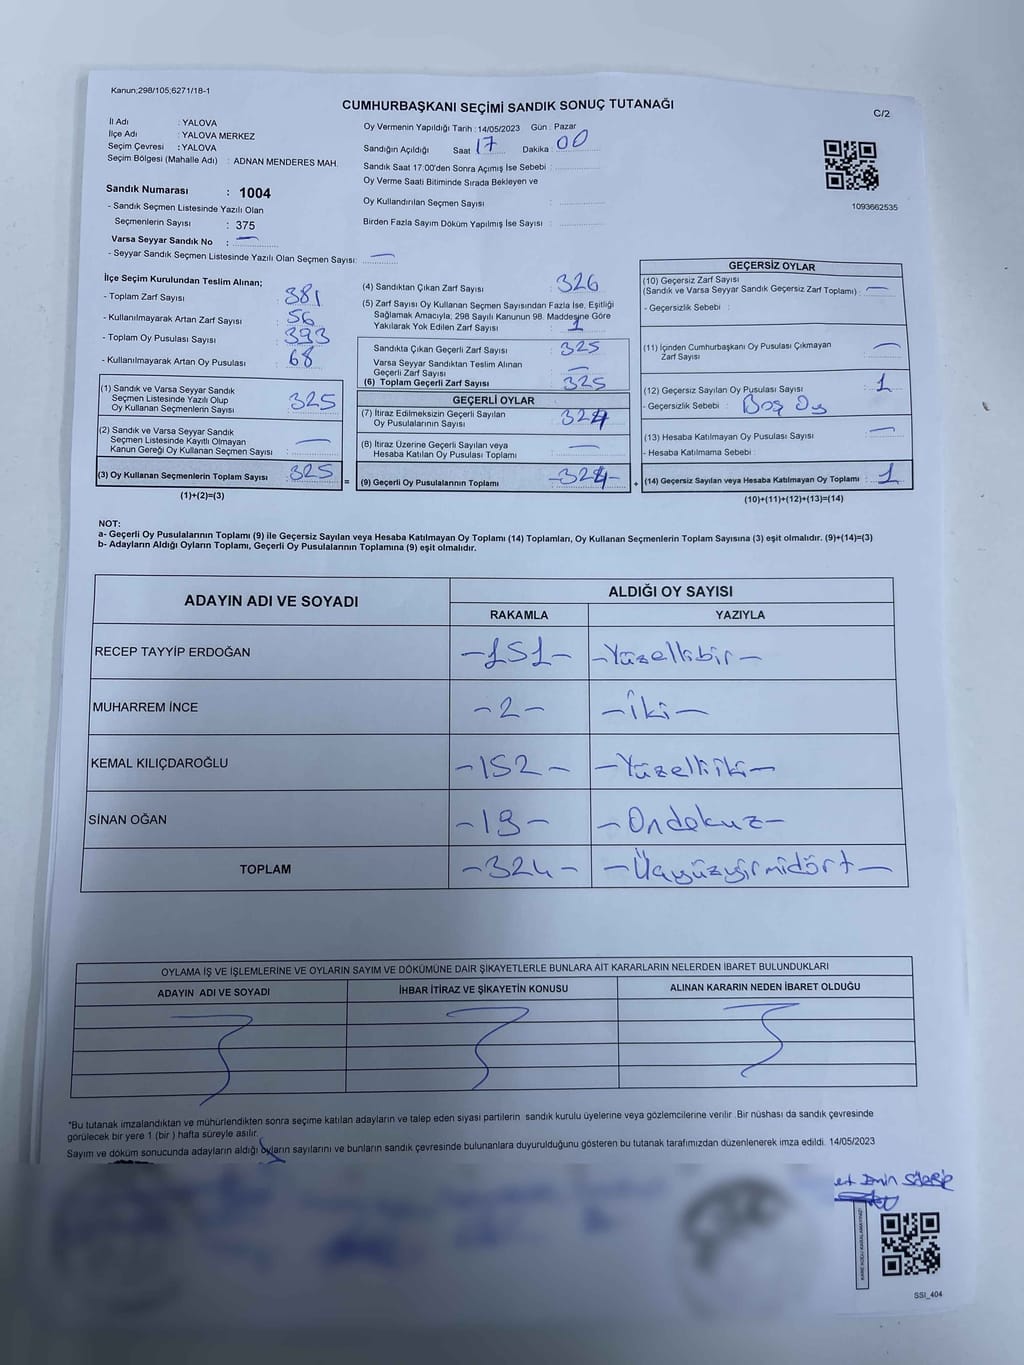 Kanun;298/105,6271/18-1
CUMHURBAŞKANI SEÇİMİ SANDIK SONUÇ TUTANAĞI
C/2
İl Adı : YALOVA
İlçe Adı : YALOVA MERKEZ
Seçim Çevresi : YALOVA
Seçim Bölgesi (Mahalle Adı) : ADNAN MENDERES MAH.
Sandık Numarası : 1004
- Sandık Seçmen Listesinde Yazılı Olan
Seçmenlerin Sayısı : 375
Varsa Seyyar Sandık No : —
- Seyyar Sandık Seçmen Listesinde Yazılı Olan Seçmen Sayısı: —
Oy Vermenin Yapıldığı Tarih : 14/05/2023 Gün : Pazar
Sandığın Açıldığı Saat 17 Dakika 00
Sandık Saat 17:00'den Sonra Açımış İse Sebebi :
Oy Verme Saati Bitiminde Sırada Bekleyen ve
Oy Kullandırılan Seçmen Sayısı :
Birden Fazla Sayım Döküm Yapılmış İse Sayısı :
1093662535
İlçe Seçim Kurulundan Teslim Alınan;
- Toplam Zarf Sayısı : 381
- Kullanılmayarak Artan Zarf Sayısı : 56
- Toplam Oy Pusulası Sayısı : 393
- Kullanılmayarak Artan Oy Pusulası : 68
(1) Sandık ve Varsa Seyyar Sandık
Seçmen Listesinde Yazılı Olup
Oy Kullanan Seçmenlerin Sayısı : 325
(2) Sandık ve Varsa Seyyar Sandık
Seçmen Listesinde Kayıtlı Olmayan
Kanun Gereği Oy Kullanan Seçmen Sayısı : —
(3) Oy Kullanan Seçmenlerin Toplam Sayısı : 325
(1)+(2)=(3)
=
(4) Sandıktan Çıkan Zarf Sayısı : 326
(5) Zarf Sayısı Oy Kullanan Seçmen Sayısından Fazla İse, Eşitliği
Sağlamak Amacıyla, 298 Sayılı Kanunun 98. Maddesine Göre
Yakılarak Yok Edilen Zarf Sayısı : 1
Sandıkta Çıkan Geçerli Zarf Sayısı : 325
Varsa Seyyar Sandıktan Teslim Alınan
Geçerli Zarf Sayısı : —
(6) Toplam Geçerli Zarf Sayısı : 325
GEÇERLİ OYLAR
(7) İtiraz Edilmeksizin Geçerli Sayılan
Oy Pusulalarının Sayısı : 324
(8) İtiraz Üzerine Geçerli Sayılan veya
Hesaba Katılan Oy Pusulası Toplamı : —
(9) Geçerli Oy Pusulalarının Toplamı : -324-
+
GEÇERSİZ OYLAR
(10) Geçersiz Zarf Sayısı
(Sandık ve Varsa Seyyar Sandık Geçersiz Zarf Toplamı) : —
- Geçersizlik Sebebi :
(11) İçinden Cumhurbaşkanı Oy Pusulası Çıkmayan
Zarf Sayısı : —
(12) Geçersiz Sayılan Oy Pusulası Sayısı : 1
- Geçersizlik Sebebi : Boş Oy
(13) Hesaba Katılmayan Oy Pusulası Sayısı : —
- Hesaba Katılmama Sebebi :
(14) Geçersiz Sayılan veya Hesaba Katılmayan Oy Toplamı : 1
(10)+(11)+(12)+(13)=(14)
NOT:
a- Geçerli Oy Pusulalarının Toplamı (9) ile Geçersiz Sayılan veya Hesaba Katılmayan Oy Toplamı (14) Toplamları, Oy Kullanan Seçmenlerin Toplam Sayısına (3) eşit olmalıdır. (9)+(14)=(3)
b- Adayların Aldığı Oyların Toplamı, Geçerli Oy Pusulalarının Toplamına (9) eşit olmalıdır.
ADAYIN ADI VE SOYADI
ALDIĞI OY SAYISI
RAKAMLA YAZIYLA
RECEP TAYYİP ERDOĞAN -151- -Yüzellibir-
MUHARREM İNCE -2- -İki-
KEMAL KILIÇDAROĞLU -152- -Yüzelliiki-
SİNAN OĞAN -19- -Ondokuz-
TOPLAM -324- -Üçyüzyirmidört-
OYLAMA İŞ VE İŞLEMLERİNE VE OYLARIN SAYIM VE DÖKÜMÜNE DAİR ŞİKAYETLERLE BUNLARA AİT KARARLARIN NELERDEN İBARET BULUNDUKLARI
ADAYIN ADI VE SOYADI İHBAR İTİRAZ VE ŞİKAYETİN KONUSU ALINAN KARARIN NEDEN İBARET OLDUĞU
*Bu tutanak imzalandıktan ve mühürlendikten sonra seçime katılan adayların ve talep eden siyası partilerin sandık kurulu üyelerine veya gözlemcilerine verilir. Bir nüshası da sandık çevresinde
görülecek bir yere 1 (bir ) hafta süreyle asılır.
Sayım ve döküm sonucunda adayların aldığı oyların sayılarını ve bunların sandık çevresinde bulunanlara duyurulduğunu gösteren bu tutanak tarafımızdan düzenlenerek imza edildi. 14/05/2023
et Emin
KARE KODU KARALAMAYINIZ!
SSI_404